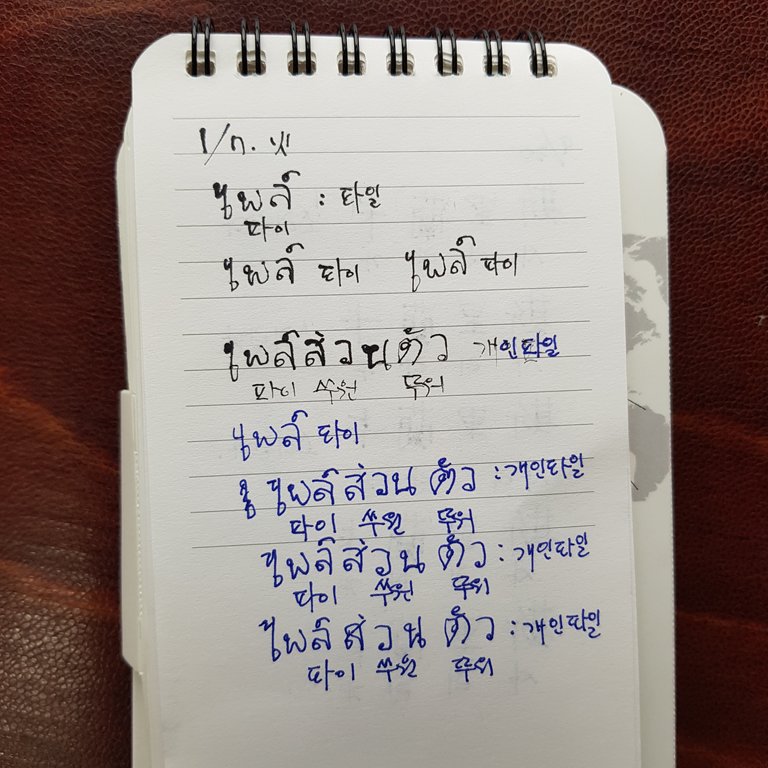 ไฟล์ : 파일
파이
ไฟล์ 파이 ไฟล์ 파이
ไฟล์ส่วนตัว 개인파일
파이 쑤원 뚜워
ไฟล์ 파이
ไฟล์ส่วนตัว : 개인파일
파이 쑤원 뚜워
ไฟล์ส่วนตัว : 개인파일
파이 쑤원 뚜워
ไฟล์ส่วนตัว : 개인파일
파이 쑤원 뚜워